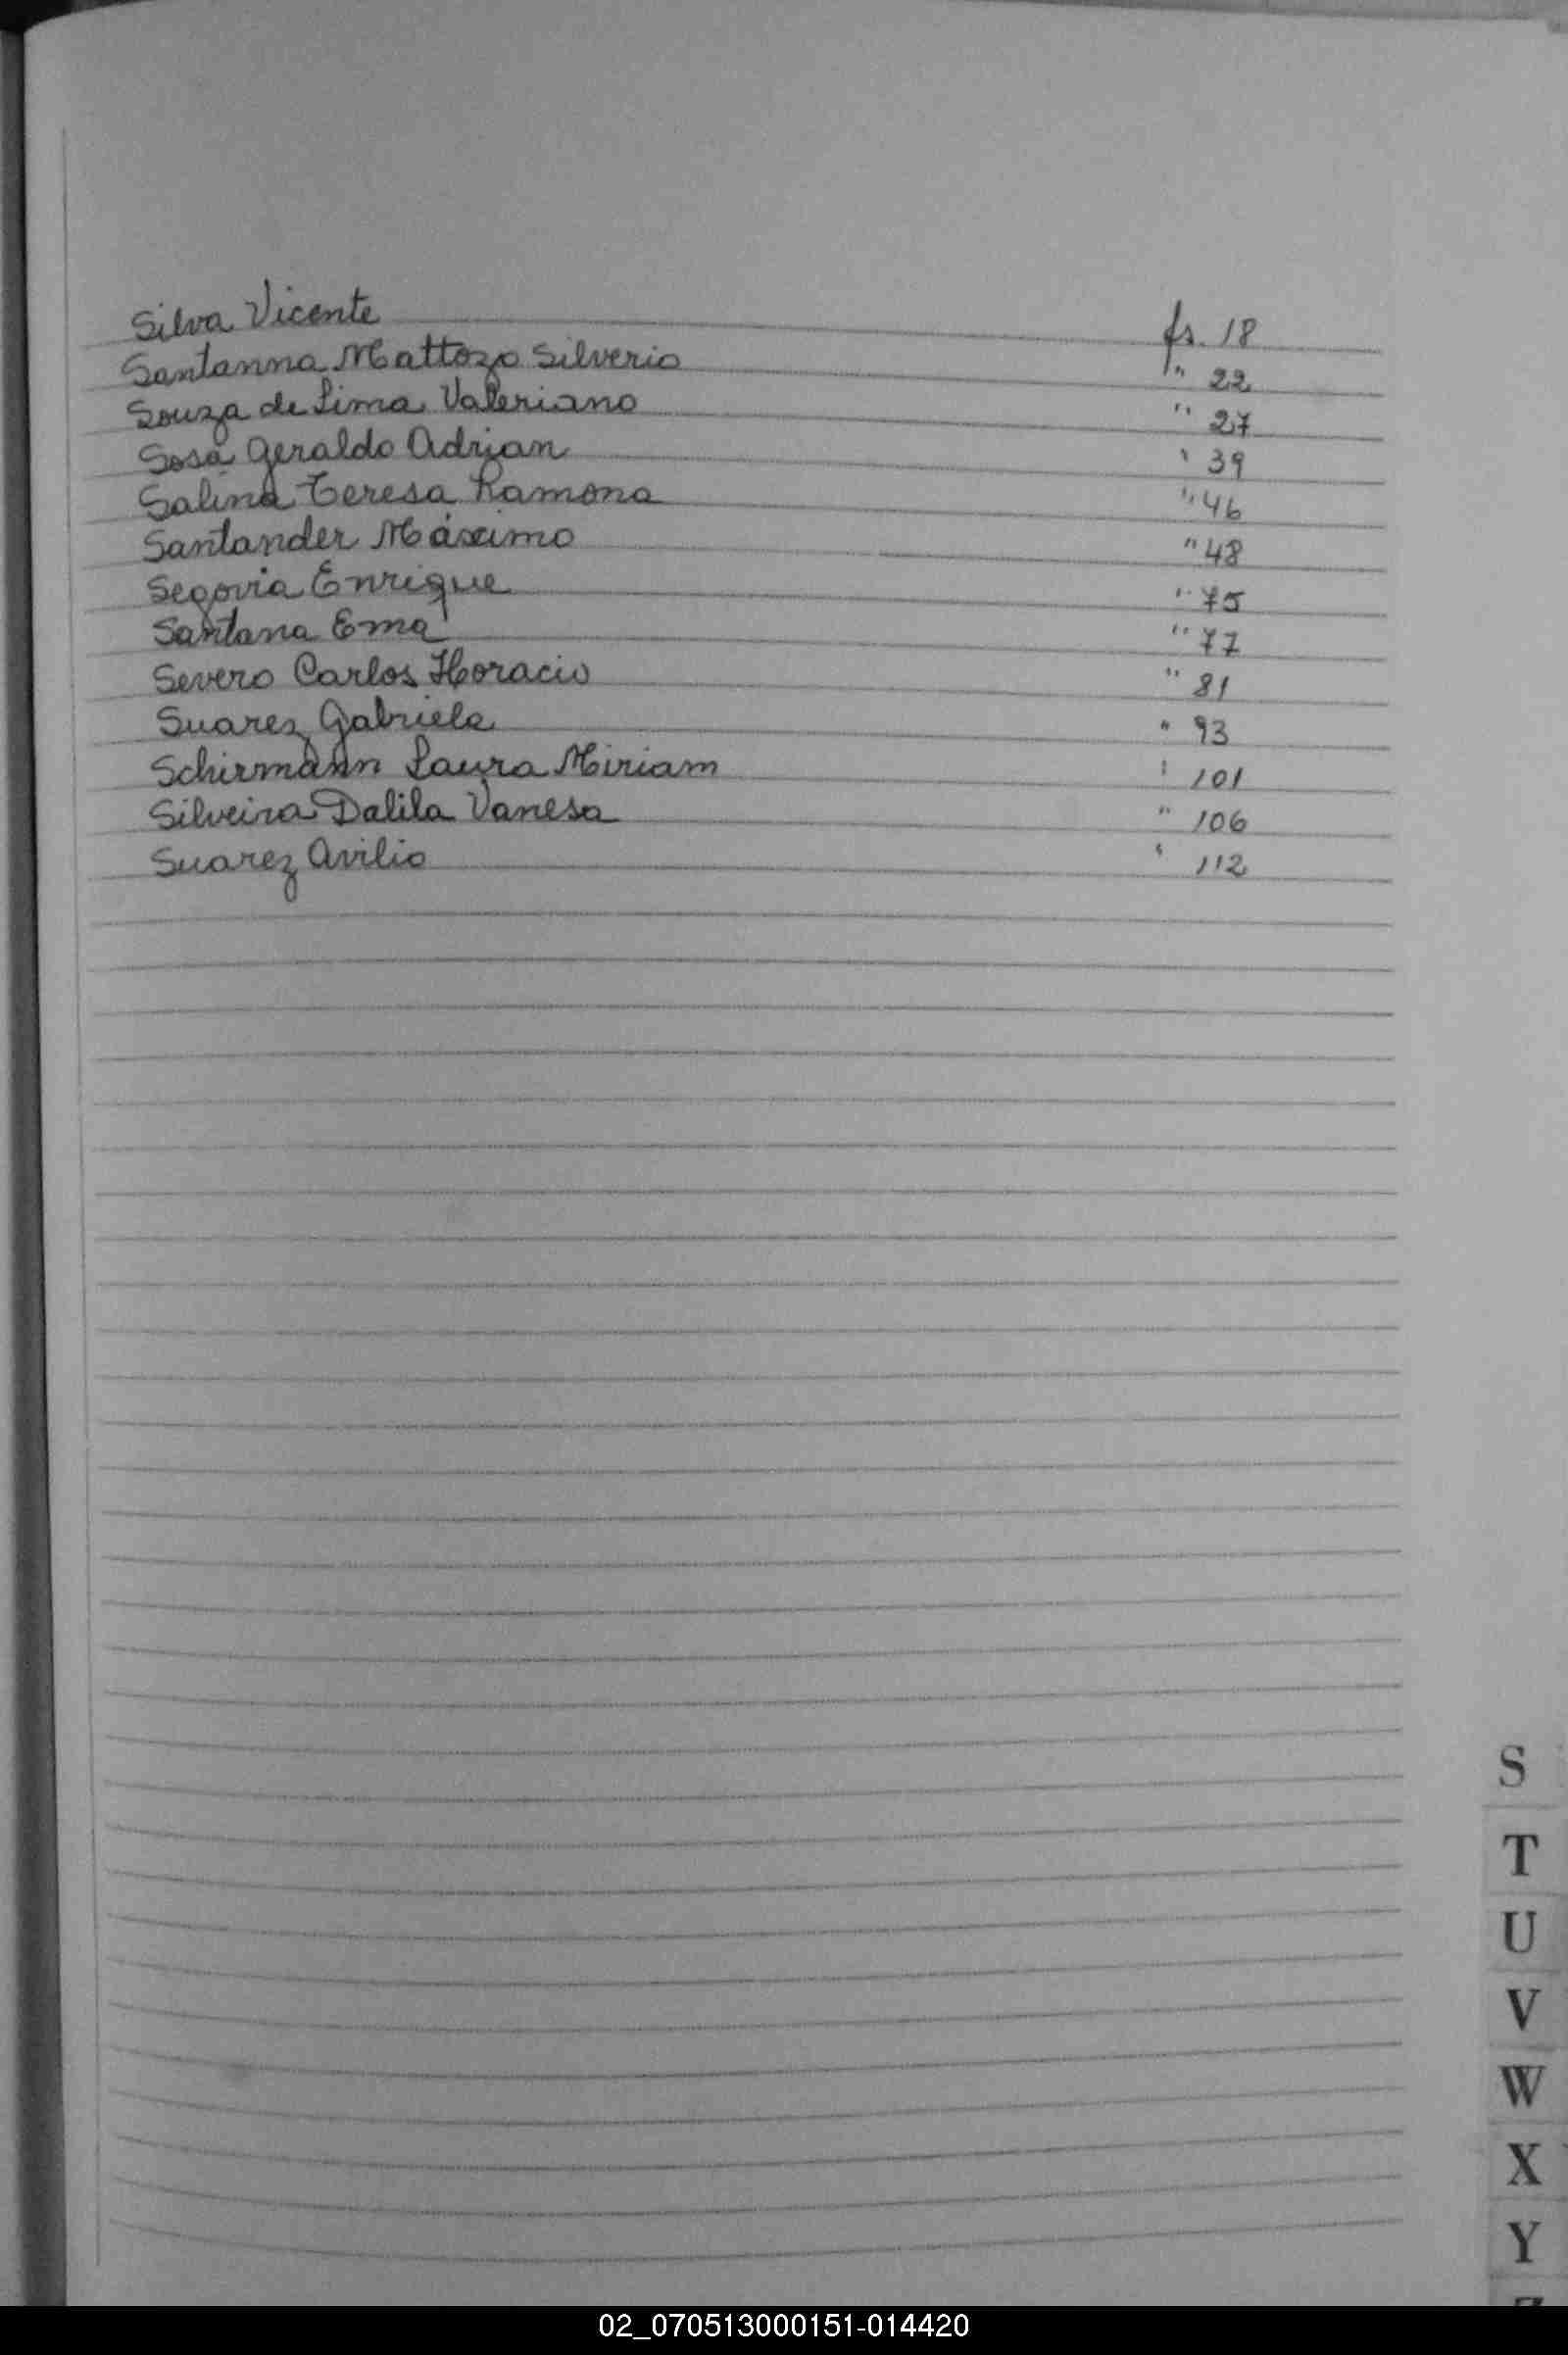 Silva Vicente fs. 18
Santanna Mattozo Silverio " 22
Souza de Lima Valeriano " 27
Sosa Geraldo Adrian " 39
Salina Teresa Ramona " 46
Santander Máximo " 48
Segovia Enrique " 75
Santana Ema " 77
Severo Carlos Horacio " 81
Suarez Gabriela " 93
Schirmann Laura Miriam " 101
Silveira Dalila Vanesa " 106
Suarez Avilio " 112
S
T
U
V
W
X
Y
02_070513000151-014420